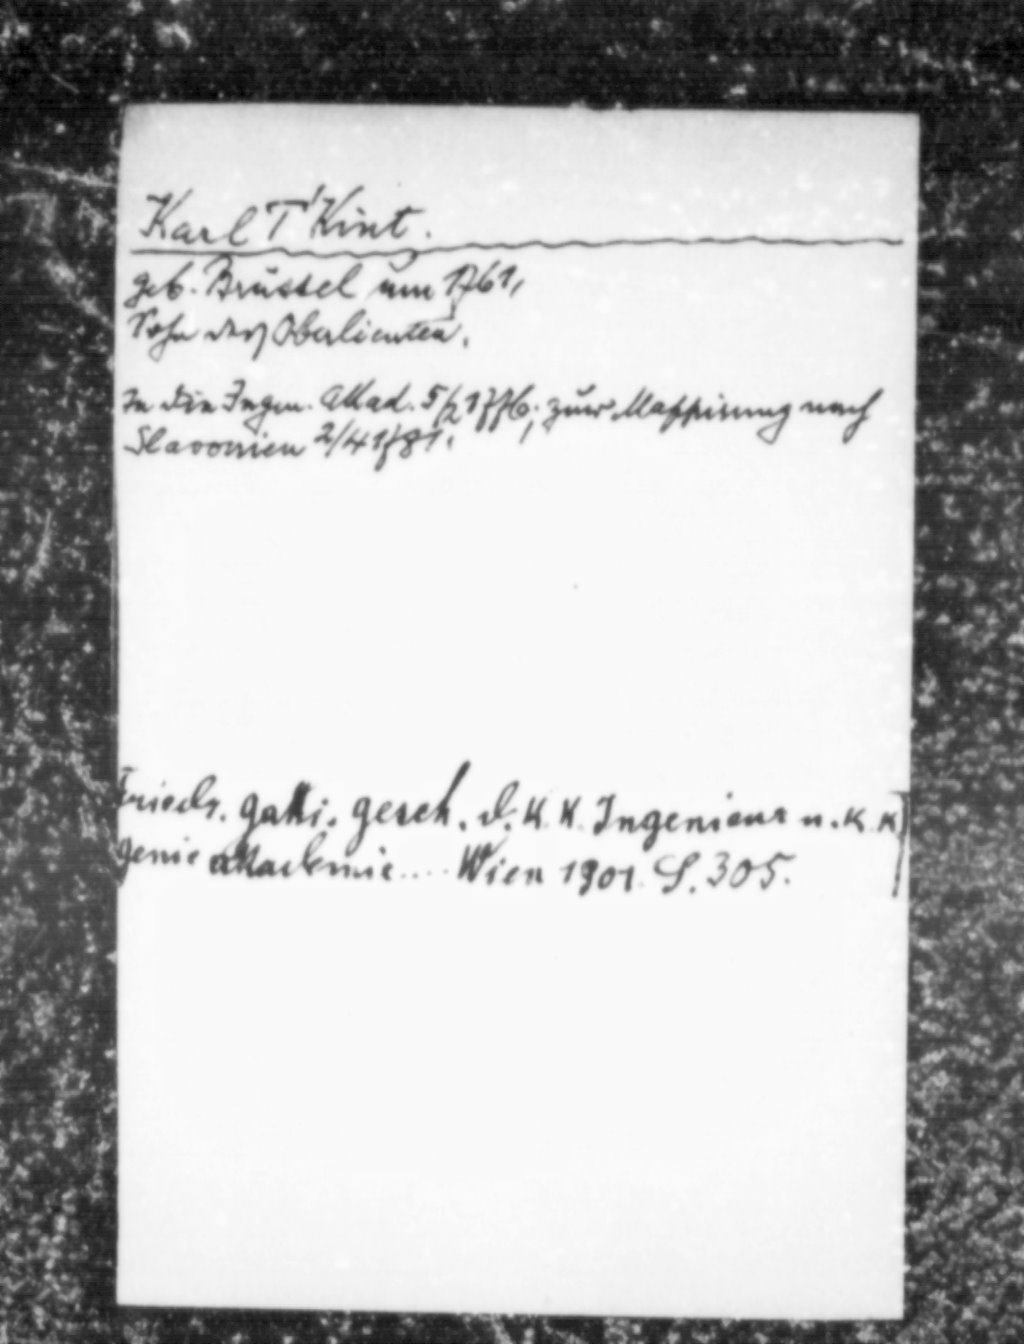 Karl T'Kint.
geb. Brüssel um 1761,
Sohn des Oberlieuten.
In die Ingen. Akad. 5/2 1776; zur Mappirung nach
Slavonien 2/4 1781.
Friedr. Gatti. Gesch. d. K. K. Ingenieur u. K. K.
Genie Akademie.... Wien 1901. S. 305.